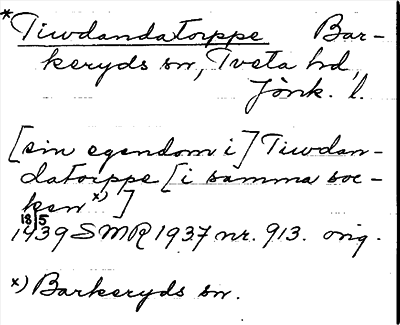 *Tiwdandatorppe Bar-
keryds sn, Tveta hd,
Jönk. l.
[sin egendom i] Tiwdan-
datorppe [i samma soc-
ken x)]
18/5
1439 SMR 1937 nr. 913. orig.
x) Barkeryds sn.